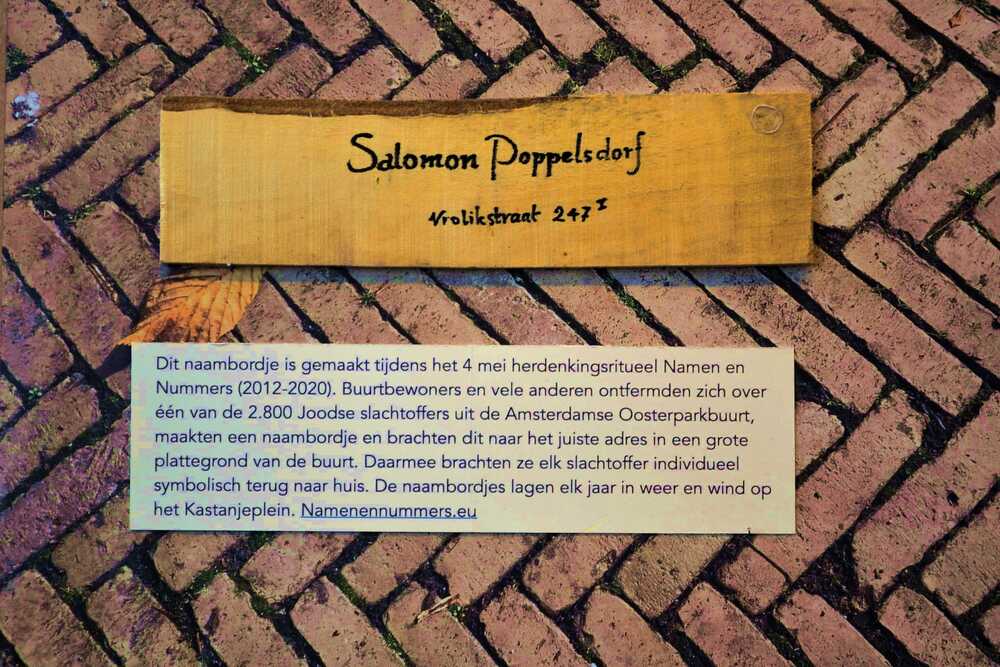 Salomon Poppelsdorf
Vrolikstraat 247 I
Dit naambordje is gemaakt tijdens het 4 mei herdenkingsritueel Namen en
Nummers (2012-2020). Buurtbewoners en vele anderen ontfermden zich over
één van de 2.800 Joodse slachtoffers uit de Amsterdamse Oosterparkbuurt,
maakten een naambordje en brachten dit naar het juiste adres in een grote
plattegrond van de buurt. Daarmee brachten ze elk slachtoffer individueel
symbolisch terug naar huis. De naambordjes lagen elk jaar in weer en wind op
het Kastanjeplein. Namenennummers.eu